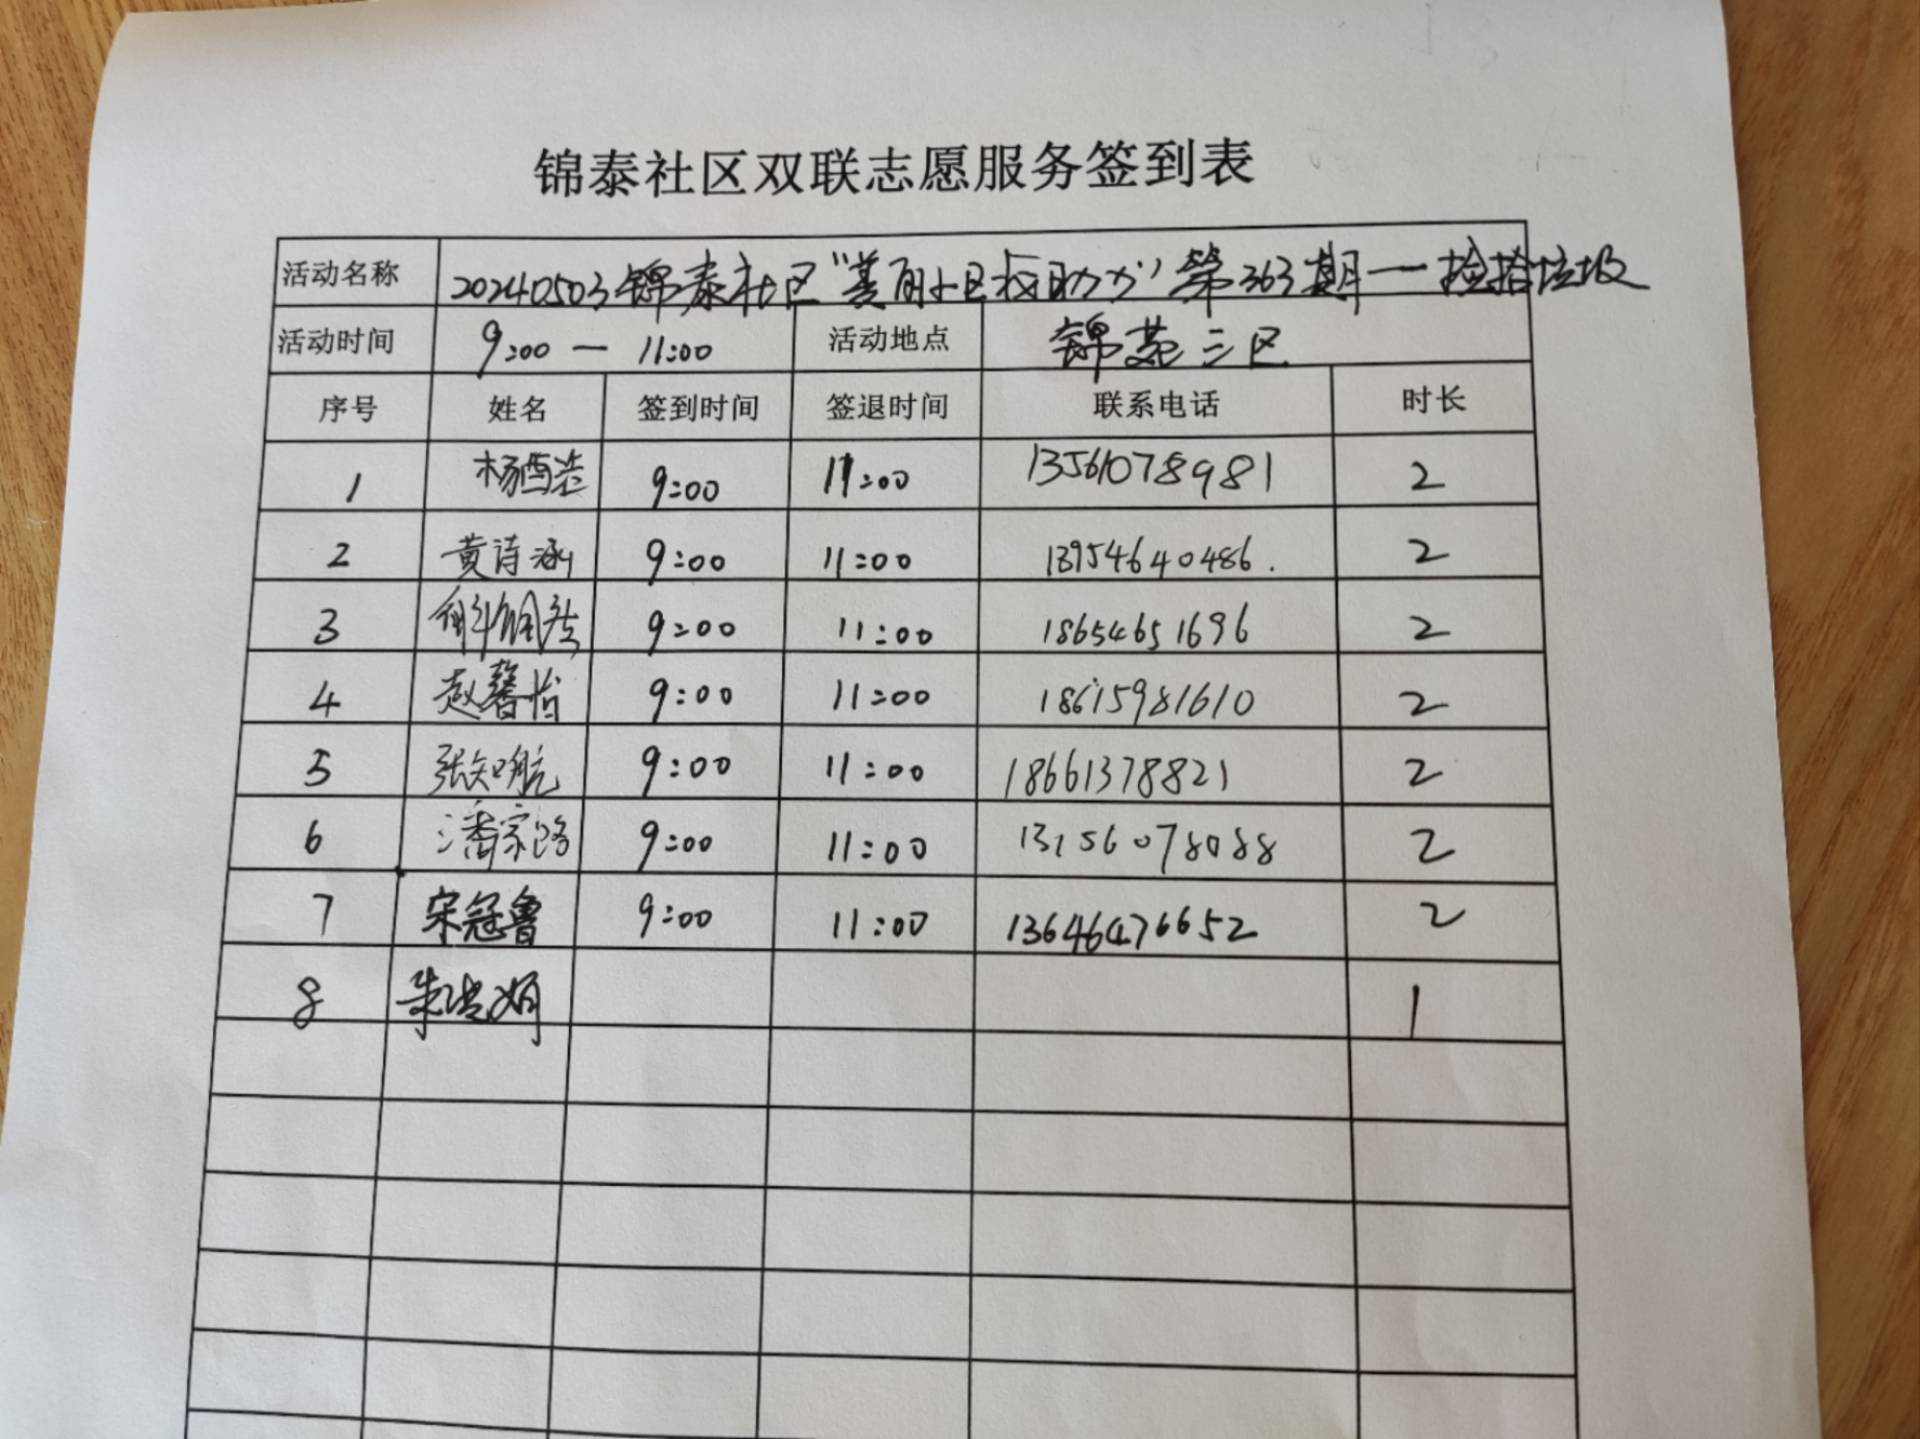 锦泰社区双联志愿服务签到表
活动名称 20240503锦泰社区“美丽小区我助力”第363期一捡拾垃圾
活动时间 9:00 — 11:00 活动地点 锦苑三区
序号 姓名 签到时间 签退时间 联系电话 时长
1 杨 9:00 11:00 13561078981 2
2 黄诗涵 9:00 11:00 13954640486. 2
3 9:00 11:00 18654651696 2
4 赵馨怡 9:00 11:00 18615981610 2
5 张知航 9:00 11:00 18661378821 2
6 潘家路 9:00 11:00 13156078088 2
7 宋冠鲁 9:00 11:00 13646476652 2
8 朱洪娟 1